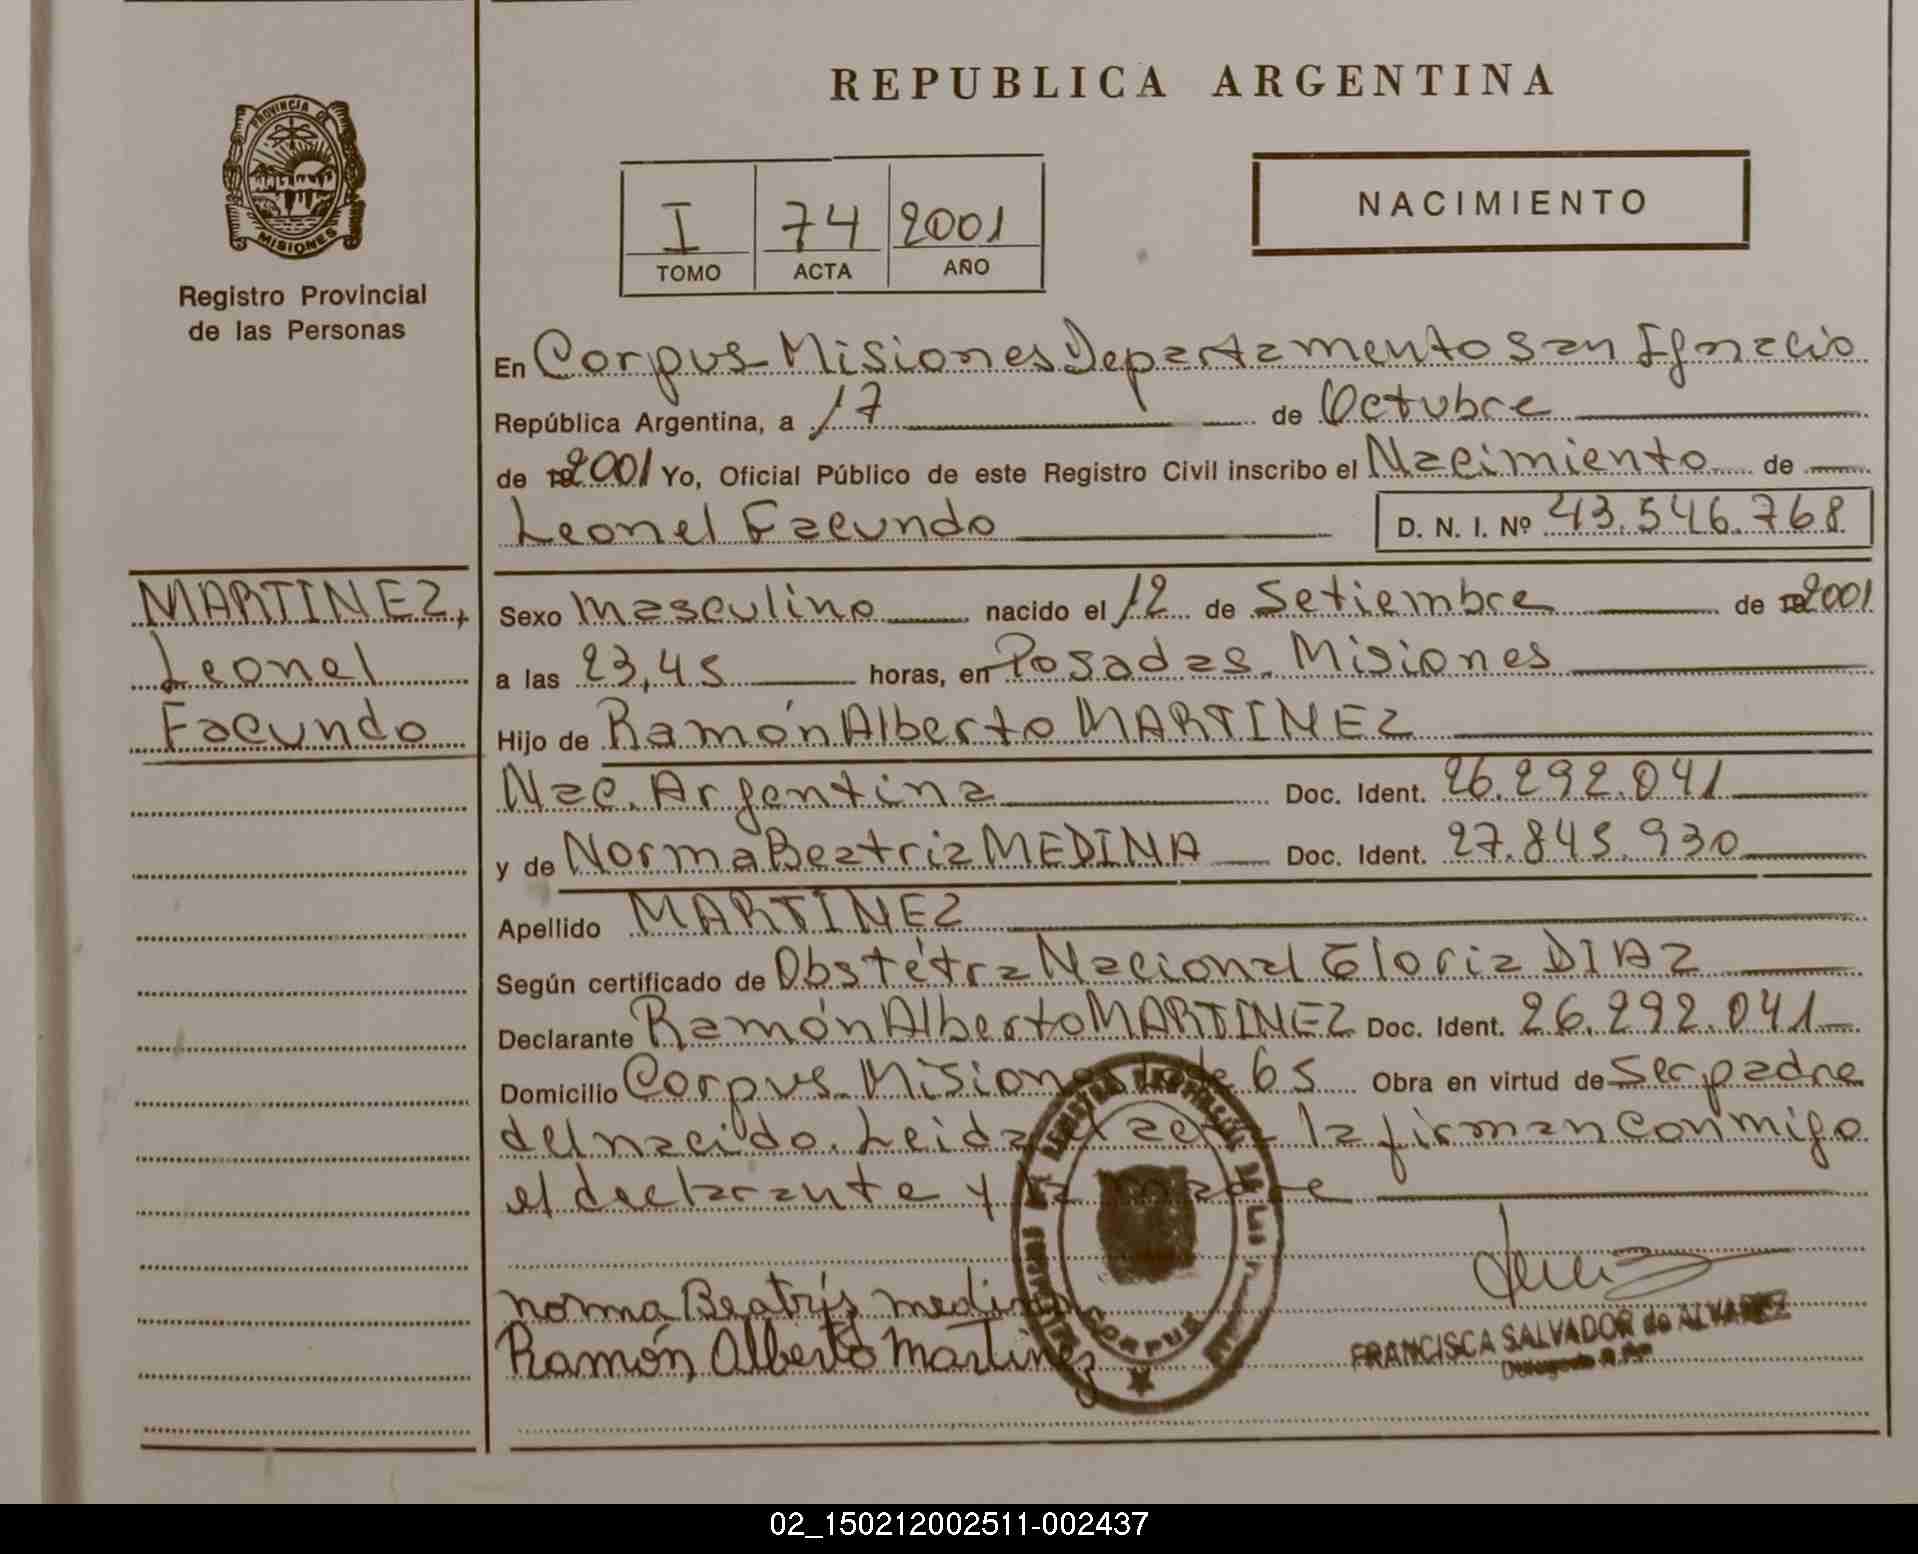 REPUBLICA ARGENTINA
PROVINCIA DE
MISIONES
Registro Provincial
de las Personas
I 74 2001
TOMO ACTA AÑO
NACIMIENTO
En Corpus-Misiones Departamento San Ignacio
República Argentina, a 17 de Octubre
de 192001 Yo, Oficial Público de este Registro Civil inscribo el Nacimiento de
Leonel Facundo D. N. I. Nº 43.546.768
MARTINEZ,
Leonel
Facundo
Sexo Masculino nacido el 12 de Setiembre de 192001
a las 23,45 horas, en Posadas. Misiones
Hijo de Ramón Alberto MARTINEZ
Nac. Argentina Doc. Ident. 26.292.041
y de Norma Beatriz MEDINA Doc. Ident. 27.845.930
Apellido MARTINEZ
Según certificado de Obstétra Nacional Gloria DIAZ
Declarante Ramón Alberto MARTINEZ Doc. Ident. 26.292.041
Domicilio Corpus-Misiones 65 Obra en virtud de Ser padre
del nacido. Leida el acta la firman conmigo
el declarante y la madre
norma Beatris medina
Ramón Alberto Martinez
CORPUS
FRANCISCA SALVADOR de ALVAREZ
02_150212002511-002437